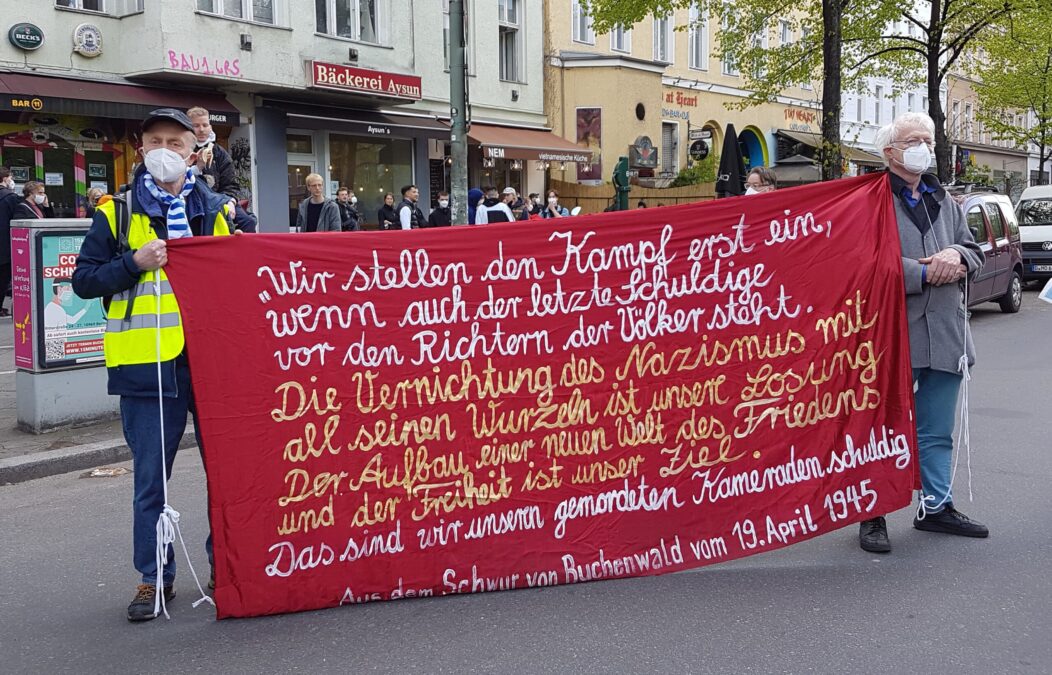 BECK'S
BAU1.GRS.
Bäckerei Aysun
BAR 11
BURGER
Aysun's
NEM
vietnamesische Küche
at Heart
„Wir stellen den Kampf erst ein,
wenn auch der letzte Schuldige
vor den Richtern der Völker steht.
Die Vernichtung des Nazismus mit
all seinen Wurzeln ist unsere Losung
Der Aufbau einer neuen Welt des Friedens
und der Freiheit ist unser Ziel.
Das sind wir unsern gemordeten Kameraden schuldig
Aus dem Schwur von Buchenwald vom 19. April 1945